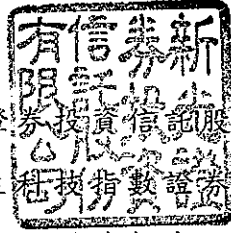 新光證
券投資
信託股份
有限公司
券投資信託股
科技指數證券